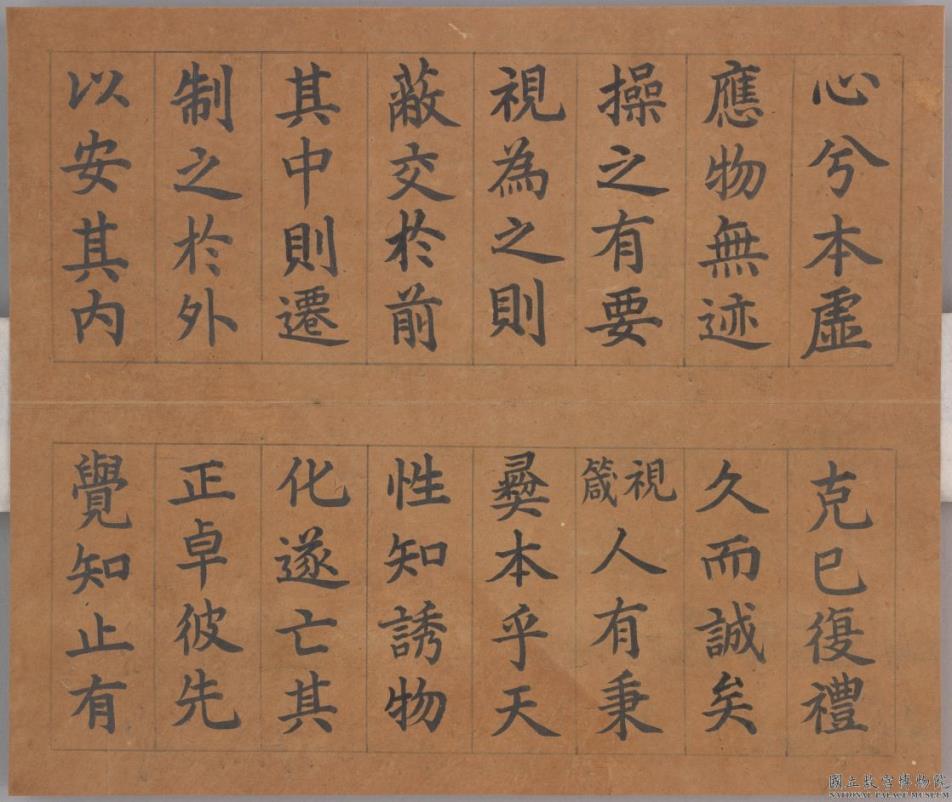 心兮本虛
應物無迹
操之有要
視為之則
蔽交於前
其中則遷
制之於外
以安其內
克己復禮
久而誠矣
視箴人有秉
彞本乎天
性知誘物
化遂亡其
正卓彼先
覺知止有
國立故宮博物院
NATIONAL PALACE MUSEUM